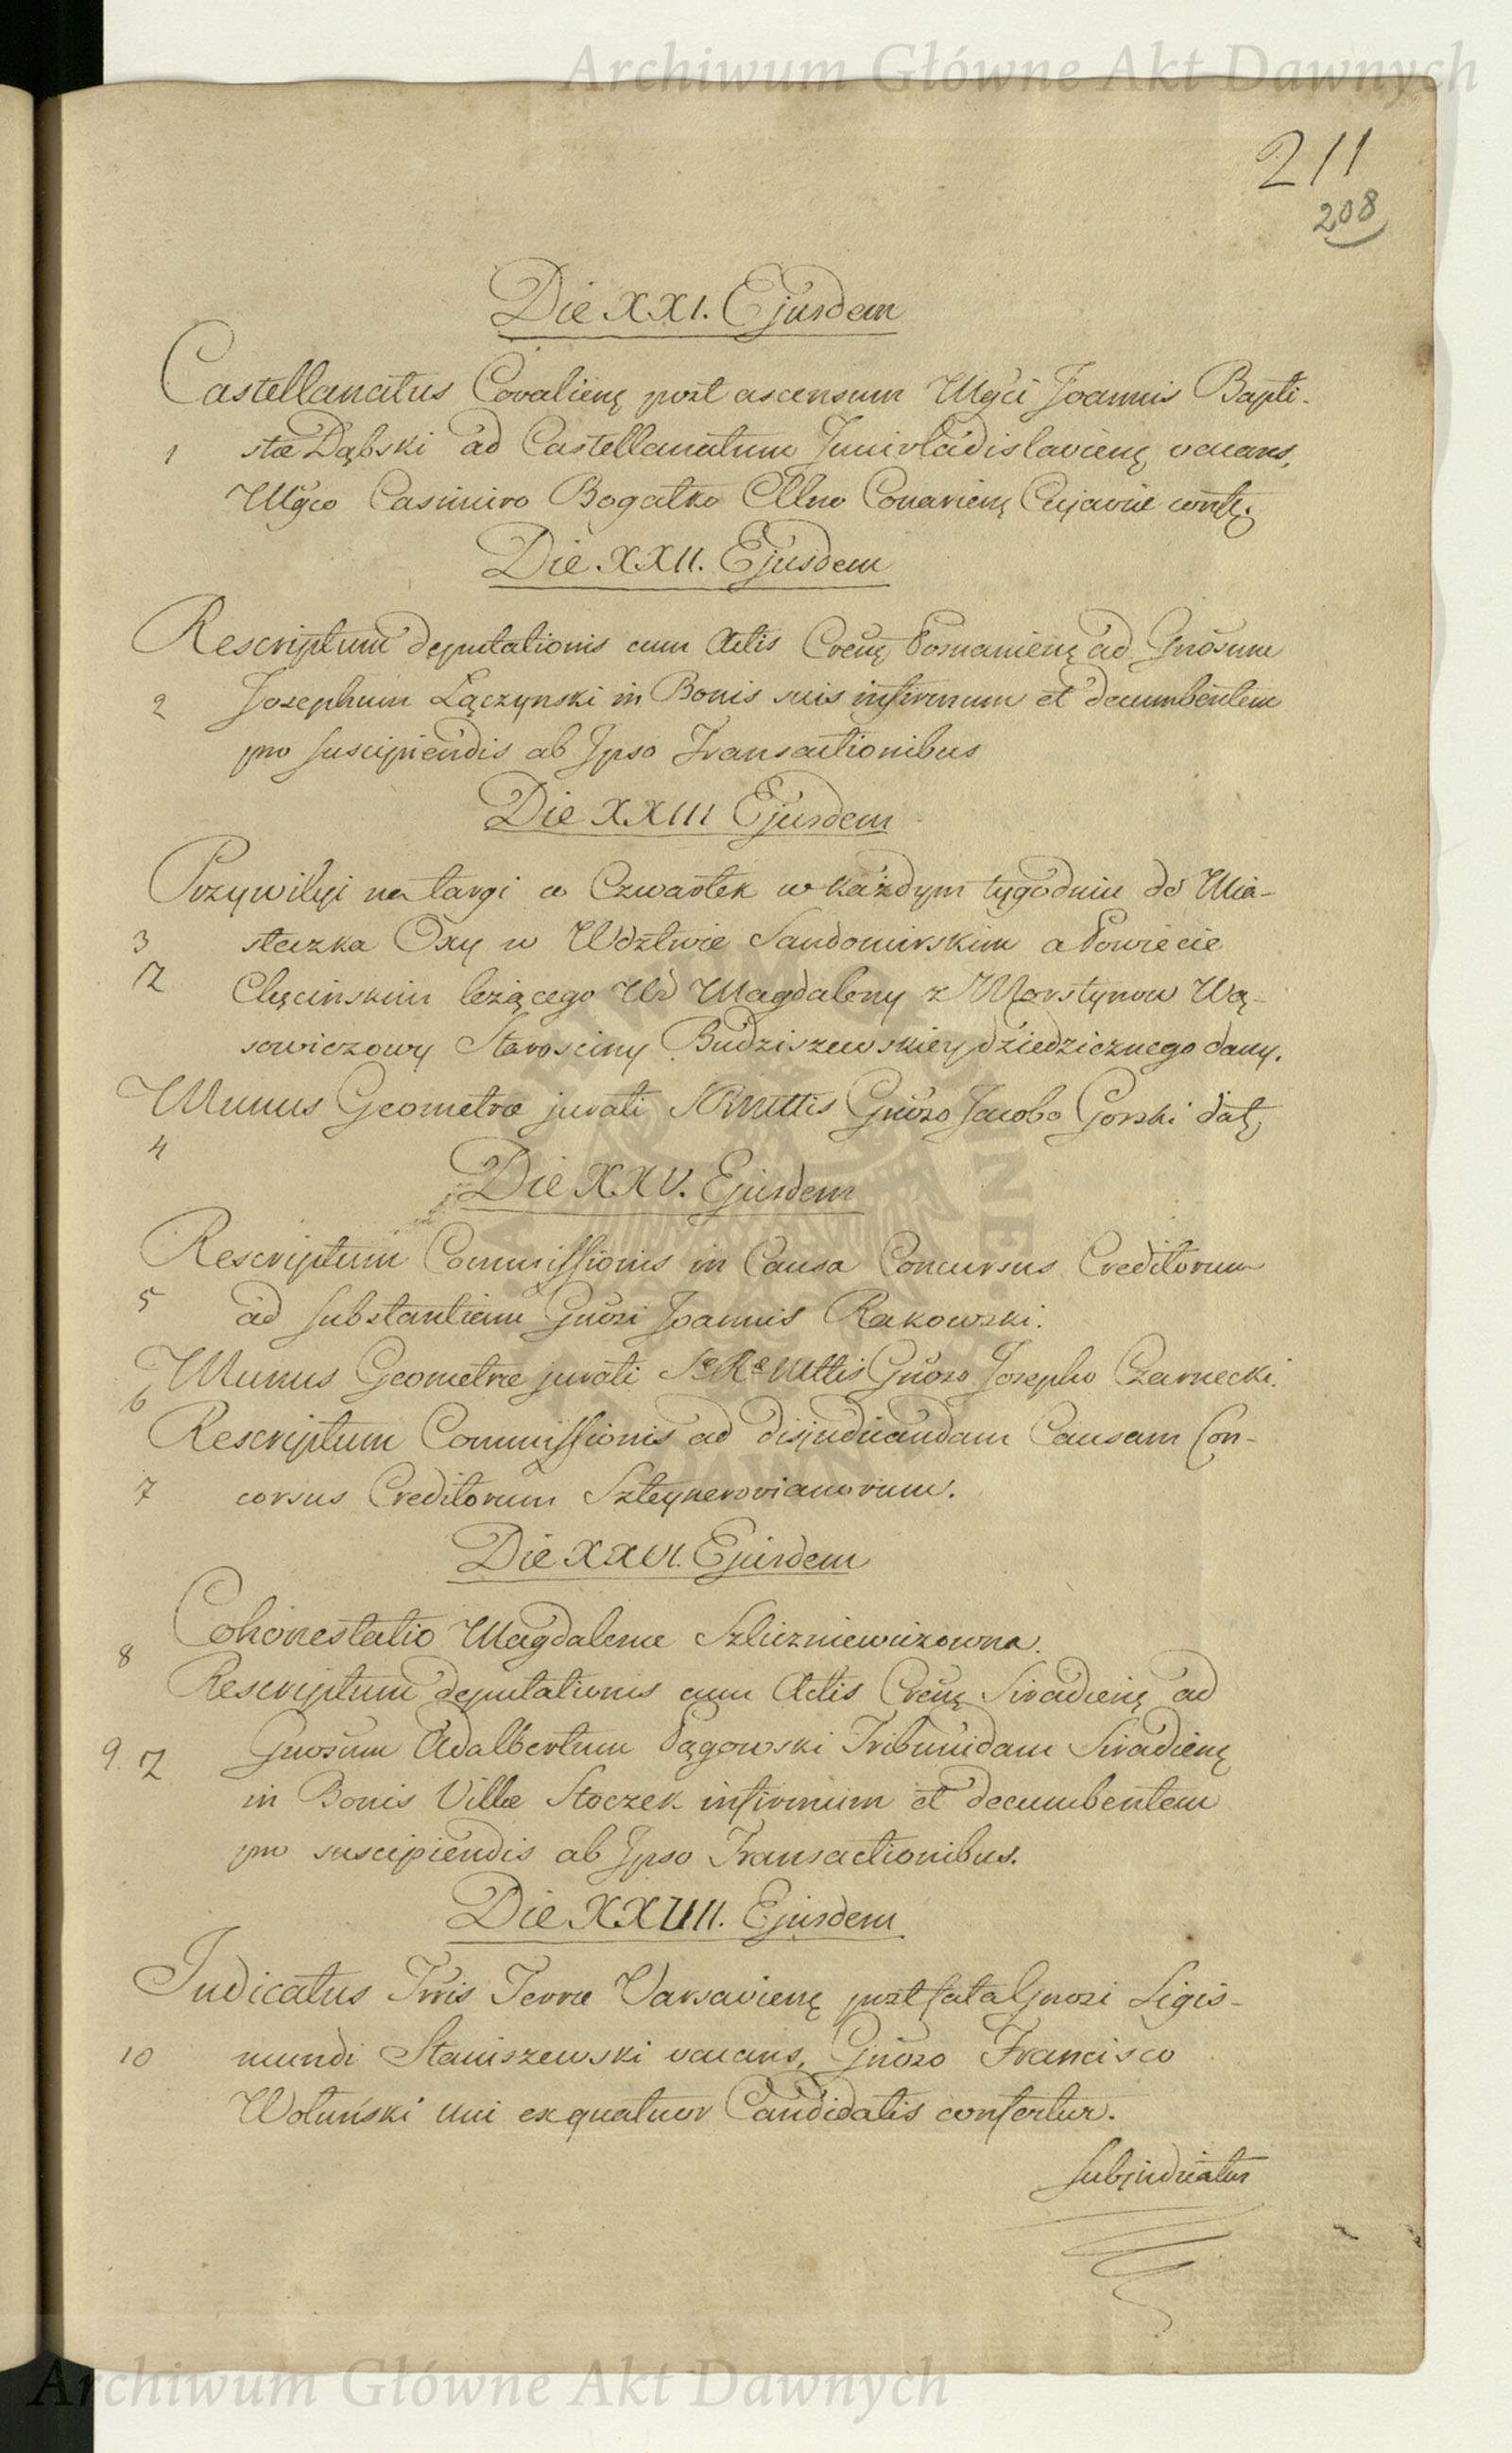 Archiwum Główne Akt Dawnych
211
208
Die XXI. Ejusdem
Castellanatus Covalienę post ascensum Mgci Joannis Bapti-
1 stæ Dąbski ad Castellanatum Junivladislavienę vacans,
Mgco Casimiro Bogatko Cllno Conarienę Cujaviæ confę.
Die XXII. Ejusdem
Rescriptum deputationis cum Actis Crenę Posnanienę ad Gnosum
2 Josephum Łączynski in Bonis suis infirmum et decumbentem
pro suscipiendis ab Ipso Transactionibus
Die XXIII Ejusdem
Przywilyi na targi w Czwartek w każdym tygodniu do Mia-
3 steczka Oxy w Wdztwie Sandomirskim a Powiecie
Z Chęcinskim leżącego Ur Magdaleny z Morstynow Wą-
sowiczowy Starosciny Budziszewskiey dziedzicznego dany.
Munus Geometræ jurati SRMttis Gnoso Jacobo Gorski datę,
4
Die XXV. Ejusdem
Rescriptum Commissionis in Causa Concursus Creditorum
5 ad substantiam Gnosi Joannis Rakowski.
6 Munus Geometræ jurati Sæ Ræ Mttis Gnoso Josepho Czarnecki.
Rescriptum Commissionis ad disjudicandam Causam Con-
7 corsus Creditorum Szteynerovianorum.
Die XXVI. Ejusdem
8 Cohonestatio Magdalenæ Szlizniewiczowna.
Rescriptum deputationis cum Actis Crenę Siradienę ad
9. Z Gnosum Adalbertum Pągowski Tribunidam Siradienę
in Bonis Villæ Stoczek infirmum et decumbentem
pro suscipiendis ab Ipso Transactionibus.
Die XXVII. Ejusdem
Judicatus Trris Terræ Varsavienę post fata Gnosi Sigis-
10 mundi Staniszewski vacans, Gnoso Francisco
Wołuński uni ex quatuor Candidatis confertur.
Subjudicatus
Archiwum Główne Akt Dawnych